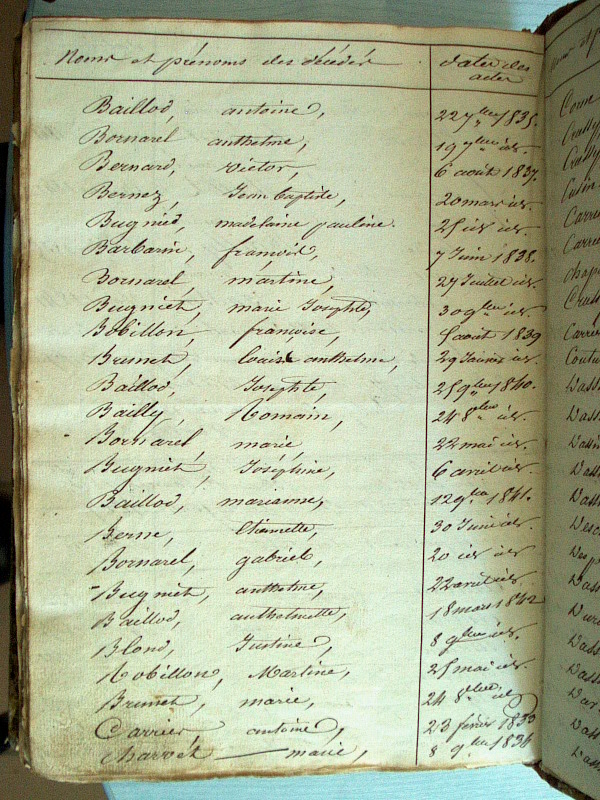 Noms et prénoms des décédés dates des actes
Baillod, antoine, 22 7bre 1835.
Bornarel anthelme, 19 9bre id.
Bernard, victor, 6 août 1837.
Bernez, Jean baptiste, 20 mars id.
Bugnied, madelaine pauline. 25 id id.
Barbarin, françois, 7 Juin 1838.
Bornarel, martine, 27 Juillet id.
Bugniet, marie Josephte, 30 9bre id.
Bobillon, françoise, 5 août 1839
Brunet, louise anthelme, 29 Janvier id.
Baillod, Josephte, 25 9bre 1840.
Bailly, Romain, 24 8bre id.
Bornarel, marie 22 mai id.
Bugniet, Joséphine, 6 avril id.
Baillod, marianne, 12 9bre 1841.
Berne, etiennette, 30 Juin id.
Bornarel, gabriel, 20 id id.
Bugniet, anthelme, 22 avril id.
Baillod, anthelmette, 18 mars 1842
Blond, Justine, 8 9bre id.
Robillon, Martine, 25 mai id.
Brunet, marie, 24 8bre id
Carrier, antoine, 23 février 1833
Charvet marie, 8 9bre 1834